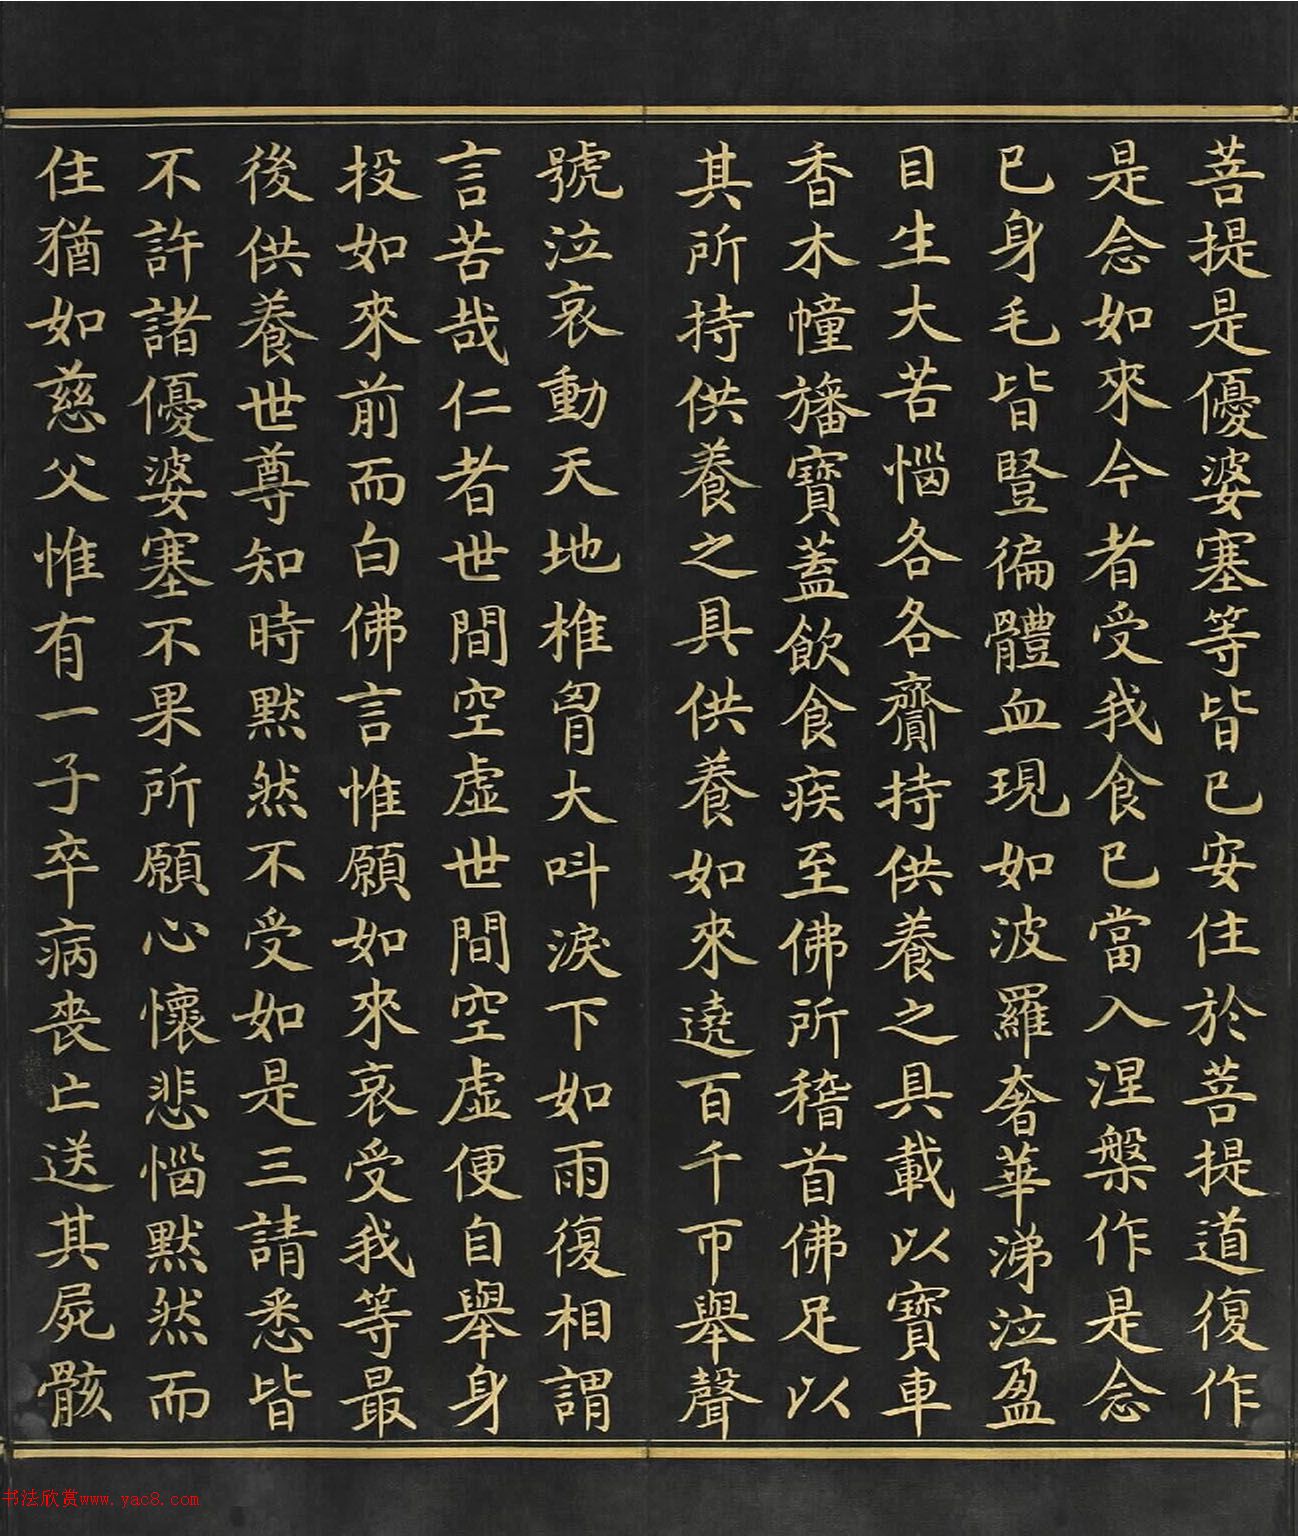 菩提是優婆塞等皆已安住於菩提道復作
是念如來今者受我食已當入涅槃作是念
已身毛皆豎徧體血現如波羅奢華涕泣盈
目生大苦惱各各齎持供養之具載以寶車
香木幢旛寶蓋飲食疾至佛所稽首佛足以
其所持供養之具供養如來遶百千帀舉聲
號泣哀動天地椎胷大叫淚下如雨復相謂
言苦哉仁者世間空虛世間空虛便自舉身
投如來前而白佛言惟願如來哀受我等最
後供養世尊知時默然不受如是三請悉皆
不許諸優婆塞不果所願心懷悲惱默然而
住猶如慈父惟有一子卒病喪亡送其屍骸
书法欣赏www.yac8.com